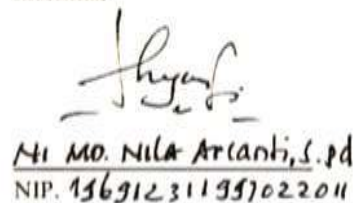 NI MD. NILA Arianti, S.pd
NIP. 196912311997022011